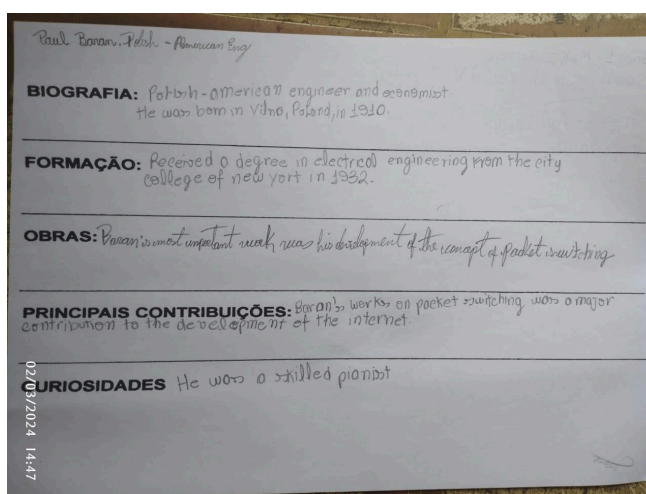 Paul Baran, Polish - American Eng
BIOGRAFIA: Polish-american engineer and economist
He was born in Vilno, Poland, in 1910.
FORMAÇÃO: Received a degree in electrical engineering from the city
college of new yort in 1932.
OBRAS: Baran's most important work was his development of the concept of packet switching
PRINCIPAIS CONTRIBUIÇÕES: Baran's works on packet switching was a major
contribution to the development of the internet.
CURIOSIDADES He was a skilled pianist
02/03/2024 14:47